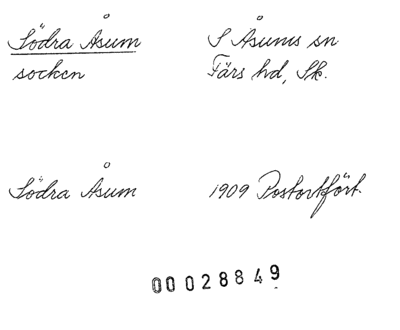 Södra Åsum
socken
S Åsums sn
Färs hd, Sk.
Södra Åsum
1909 Postortfört.
00028849